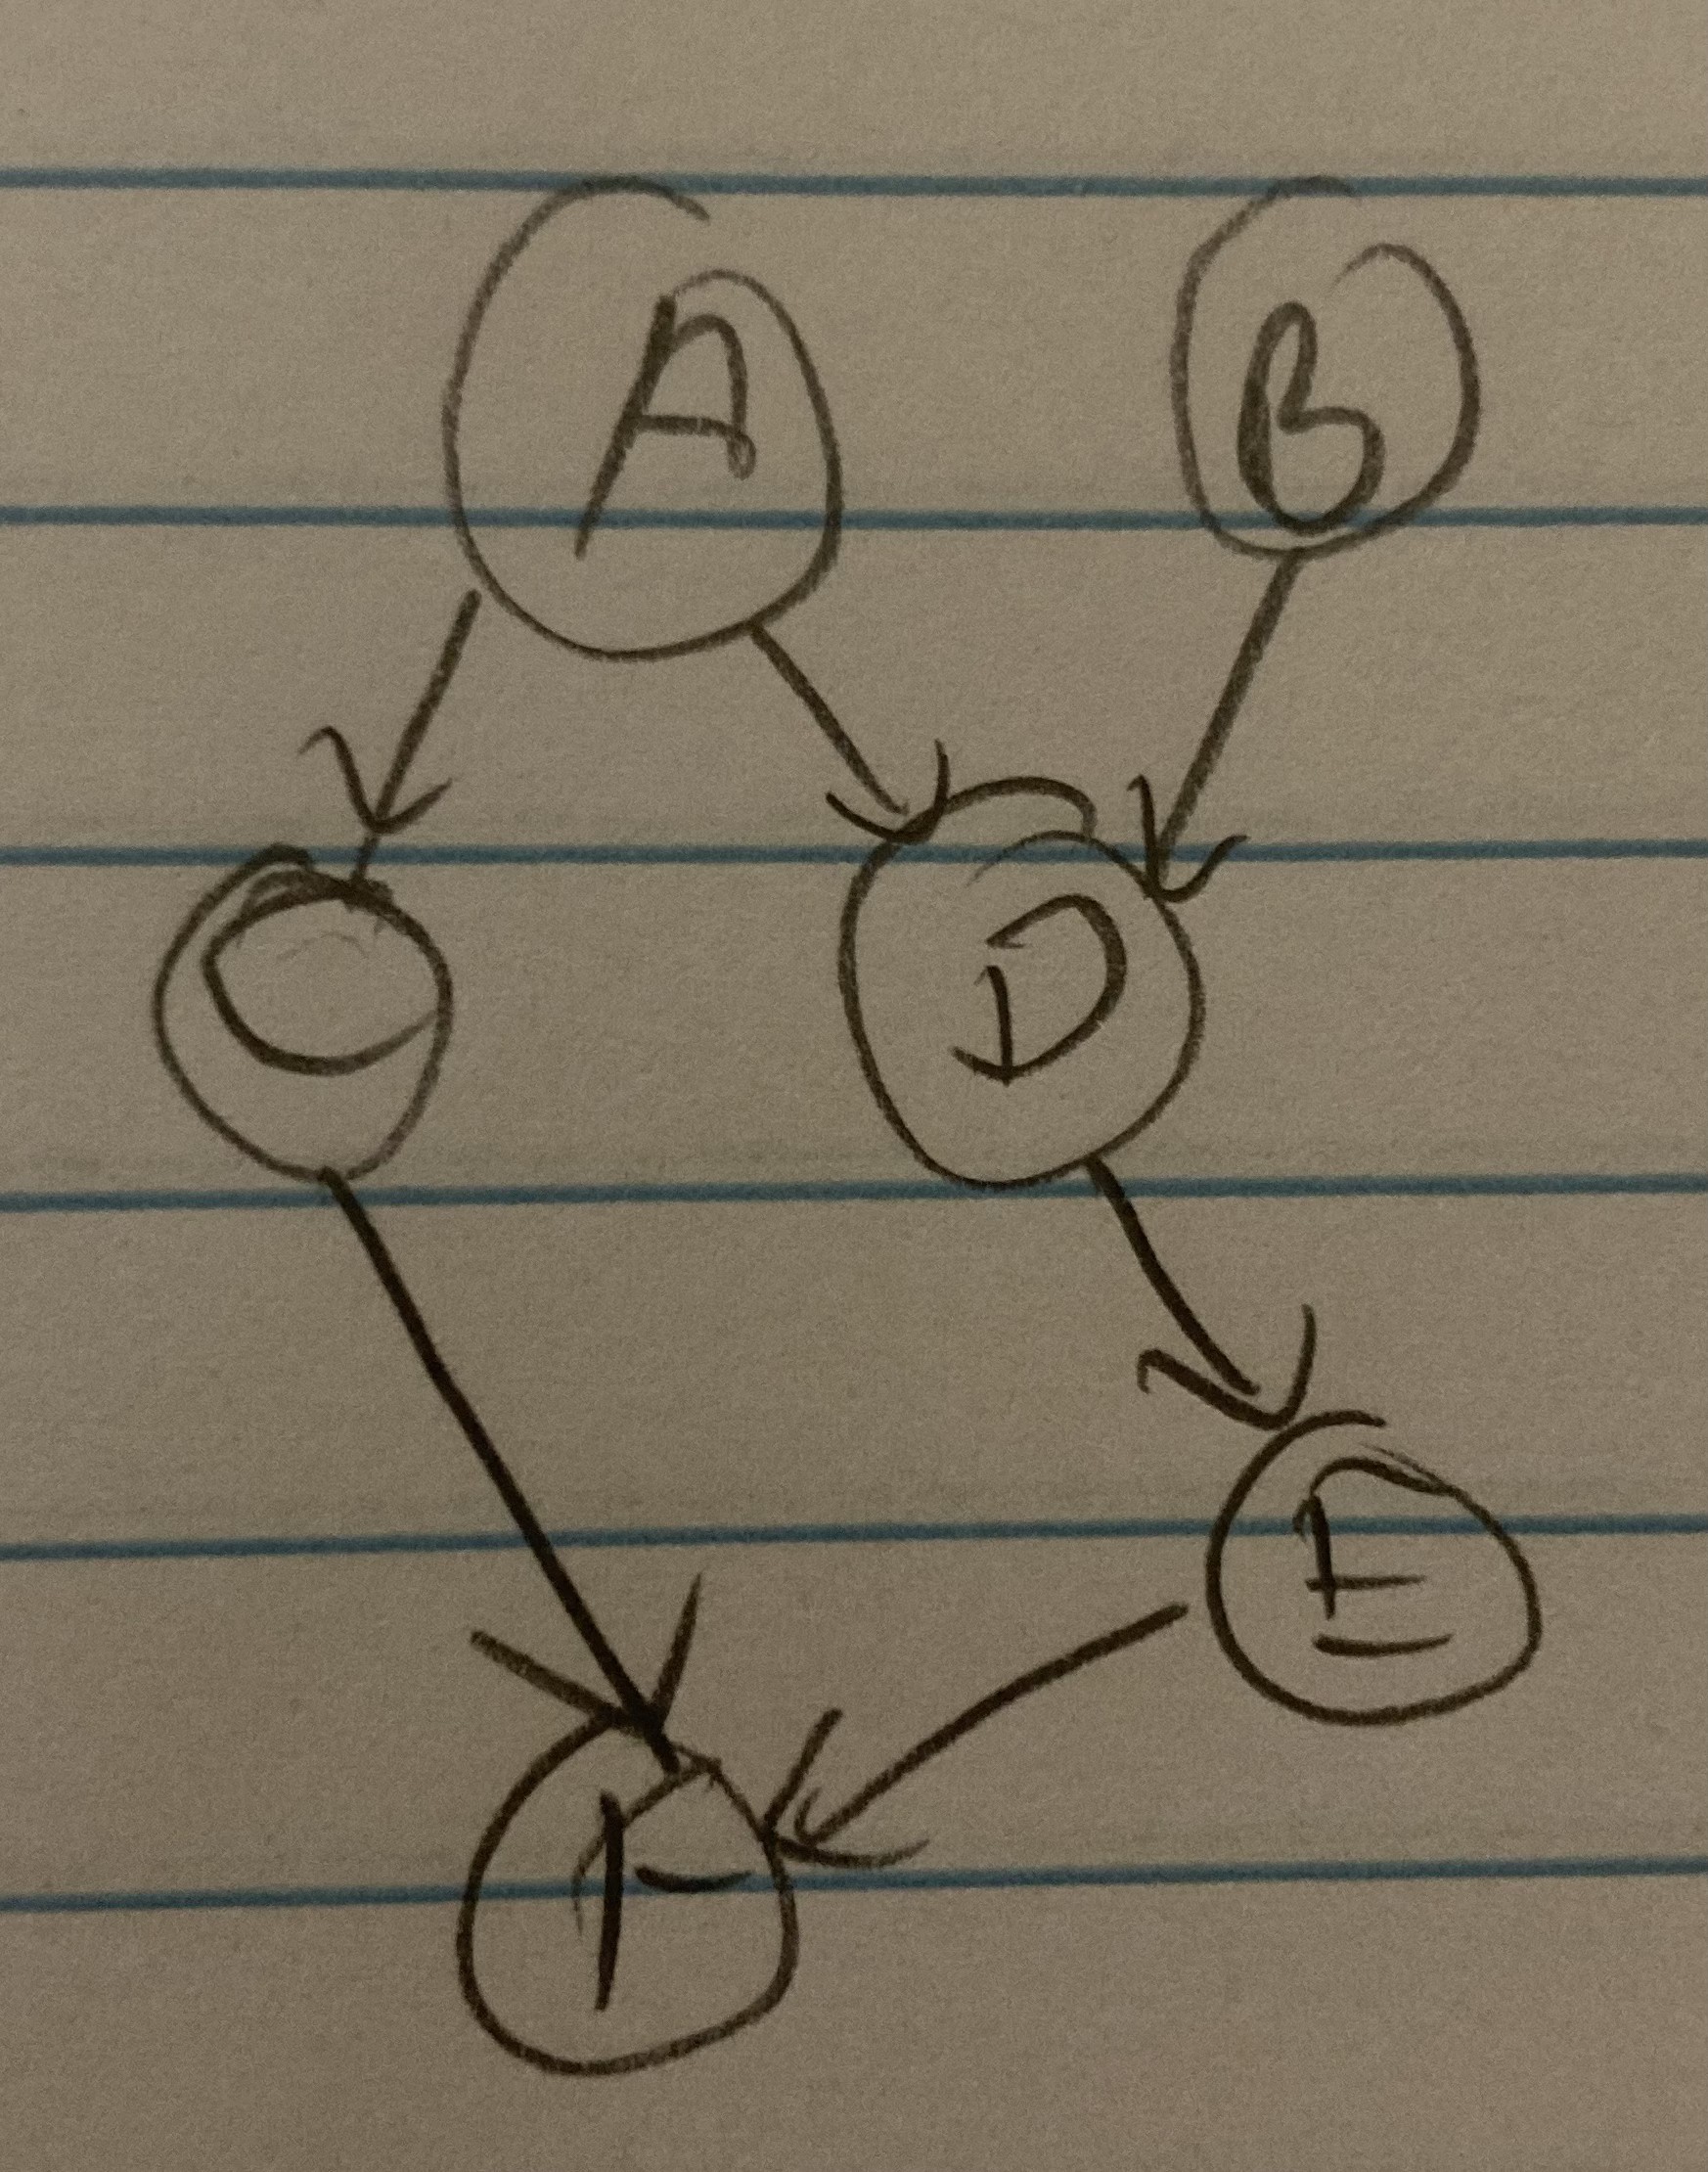 A B
C D
E
F